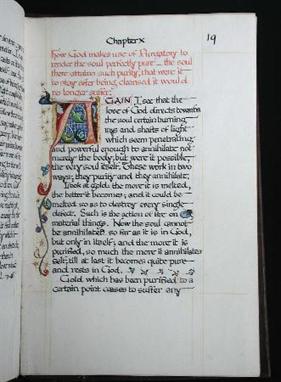 Chapter X
19
How God makes use of Purgatory to
render the soul perfectly pure — the soul
there attains such purity, that were it
to stay after being cleansed it would
no longer suffer.
AGAIN I see that the
love of God directs towards
the soul certain burning
rays and shafts of light
which seem penetrating
and powerful enough to annihilate not
merely the body, but were it possible,
the very soul itself. These work in two
ways; they purify and they annihilate.
Look at gold: the more it is melted,
the better it becomes; and it could be
melted so as to destroy every single
defect. Such is the action of fire on
material things. Now the soul cannot
be annihilated so far as it is in God,
but only in itself, and the more it is
purified, so much the more it annihilates
itself, till at last it becomes quite pure
and rests in God.
Gold, which has been purified to a
certain point ceases to suffer any